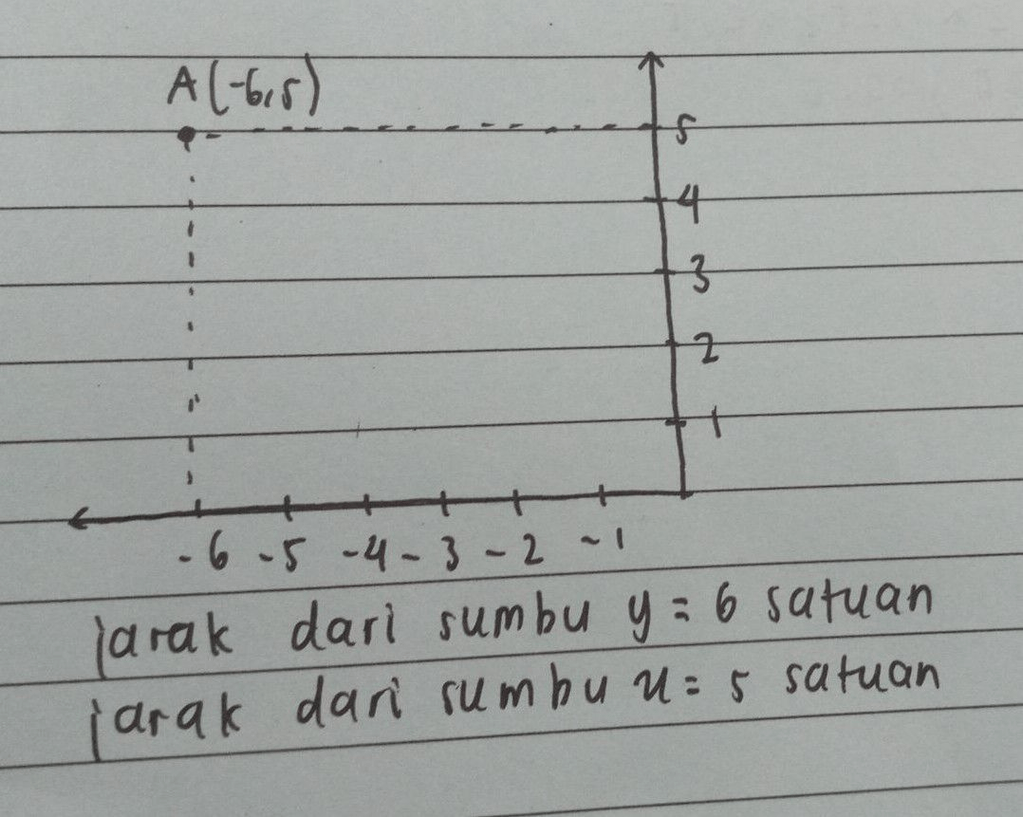 A(-6,5)
5
4
3
2
1
-6 -5 -4 -3 -2 -1
jarak dari sumbu y = 6 satuan
jarak dari sumbu x = 5 satuan